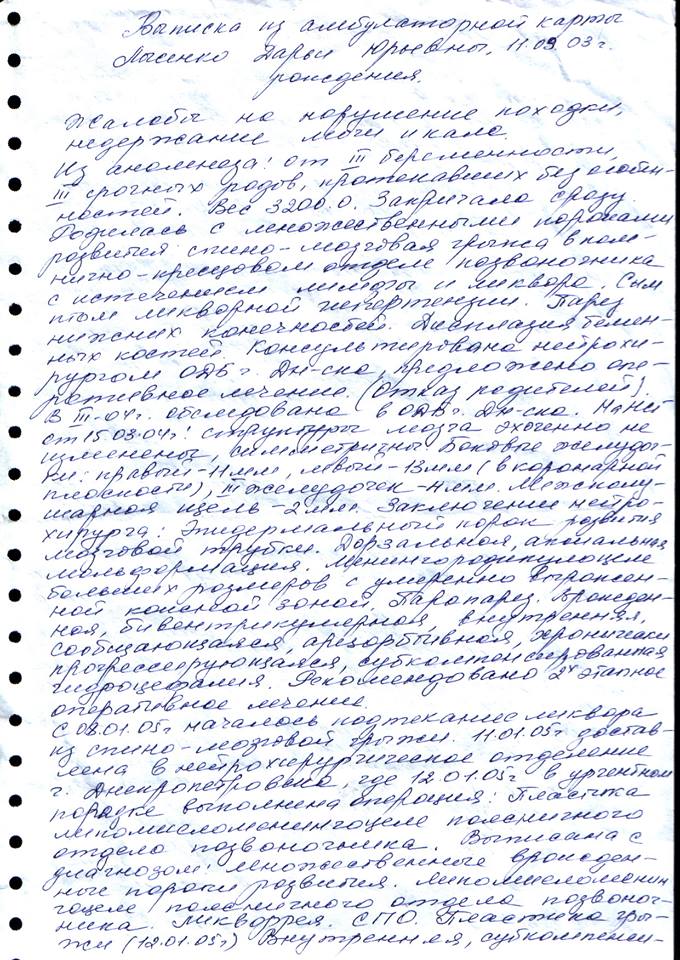 Выписка из амбулаторной карты
Лысенко Дарьи Юрьевны, 11.09.03 г.
рождения.
Жалобы на нарушение походки,
недержание мочи и кала.
Из анамнеза: от III беременности,
III срочных родов, протекавших без особен-
ностей. Вес 3200,0. Закричала сразу.
Родилась с множественными пороками
развития спино-мозговая грыжа в пояс-
нично-кресцовом отделе позвоночника
с истечением лимфы и ликвора. Сим
птом ликворной гипертензии. Парез
нижних конечностей. Дисплазия темен-
ных костей. Консультирована нейрохи-
рургом ОДБ г. Дн-ска, предложено опе-
ративное лечение. (Отказ родителей).
В III-04г. обследована в ОДБ г. Дн-ска.
от 15.03.04г: структуры мозга эхогенно не
изменены, симметричны. Боковые желудоч-
ки: правый-11мм, левый-13мм (в коронарной
плоскости), III желудочек-4мм. Межполу-
шарная щель-2мм. Заключение нейро-
хирурга: Эпидермальный порок развития
мозговой трубки. Дорзальная, аноальная
мальформация. Менингорадикулоцеле
больших размеров с умеренно выражен-
ной кожной зоной. Парапарез. Врожден-
ная, бивентрикулярная, внутренняя,
сообщающаяся, арезорбтивная, хронически
прогрессирующаяся, субкомпенсированная
гидроцефалия. Рекомендовано 2х этапное
оперативное лечение.
С 08.01.05г началось подтекание ликвора
из спино-мозговой грыжи. 11.01.05г достав-
лена в нейрохирургическое отделение
г. Днепропетровска, где 12.01.05г в ургентном
порядке выполнена операция: Пластика
липомиеломенингоцеле поясничного
отдела позвоночника. Выписана с
диагнозом: множественные врожден-
ные пороки развития. Липомиеломенин
гоцеле поясничного отдела позвоноч-
ника. Ликворрея. СПО. Пластика гры-
жи (12.01.05г) Внутренняя, субкомпенси-